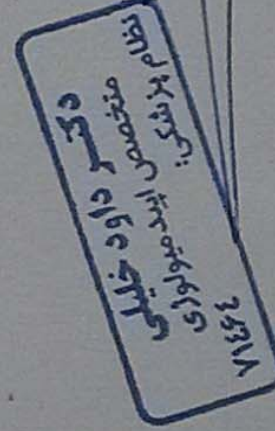 دکتر داود خلیلی
متخصص اپیدمیولوژی
نظام پزشکی:
۷۱۴۴۴